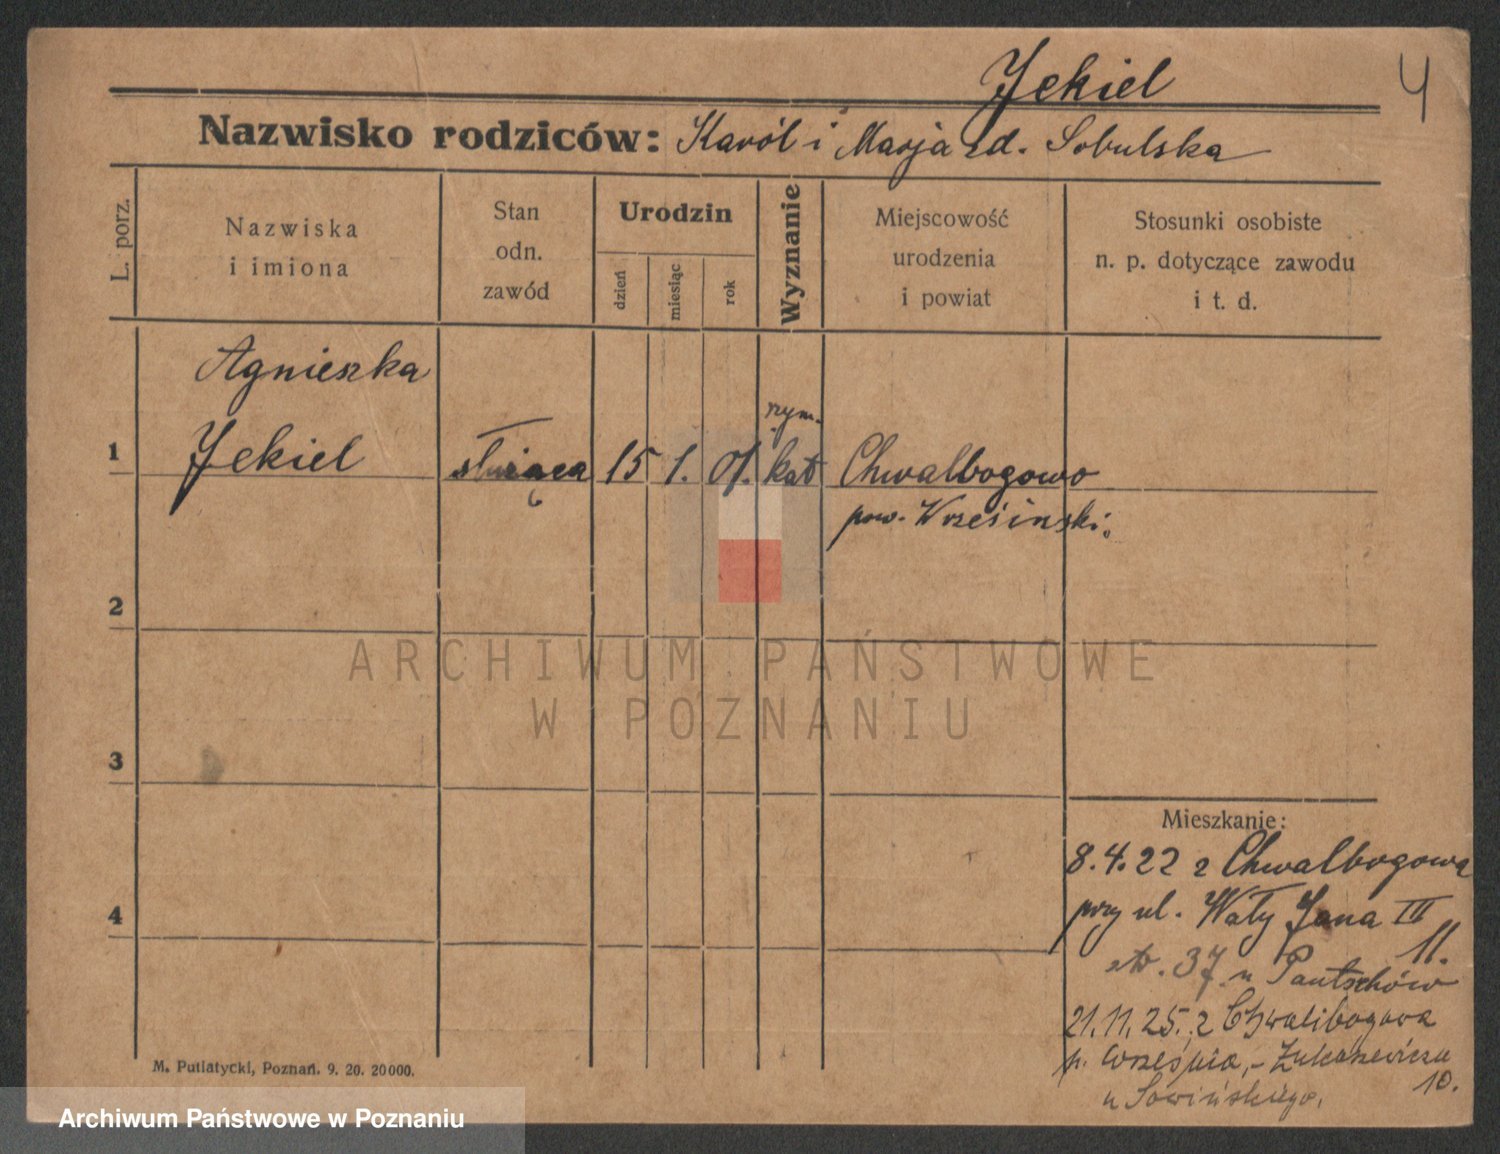 Jekiel
4
Nazwisko rodziców: Karól i Marja zd. Sobulska
L. porz.
Nazwiska
i imiona
Stan
odn.
zawód
Urodzin
dzień
miesiąc
rok
Wyznanie
Miejscowość
urodzenia
i powiat
Stosunki osobiste
n. p. dotyczące zawodu
i t. d.
Agnieszka
rzym.
1 Jekiel służąca 15 1. 01. kat Chwalbogowo
pow. Wrzesinski.
2
ARCHIWUM PAŃSTWOWE
W POZNANIU
3
Mieszkanie:
8.4.22 z Chwalbogowa
4
przy ul. Wały Jana III
11.
37. u Pautschów
21.11.25. z Chwalibogowa
p. Września, - Łukaszewicza
10.
u Sowińskiego.
M. Putiatycki, Poznań. 9. 20. 20000.
Archiwum Państwowe w Poznaniu